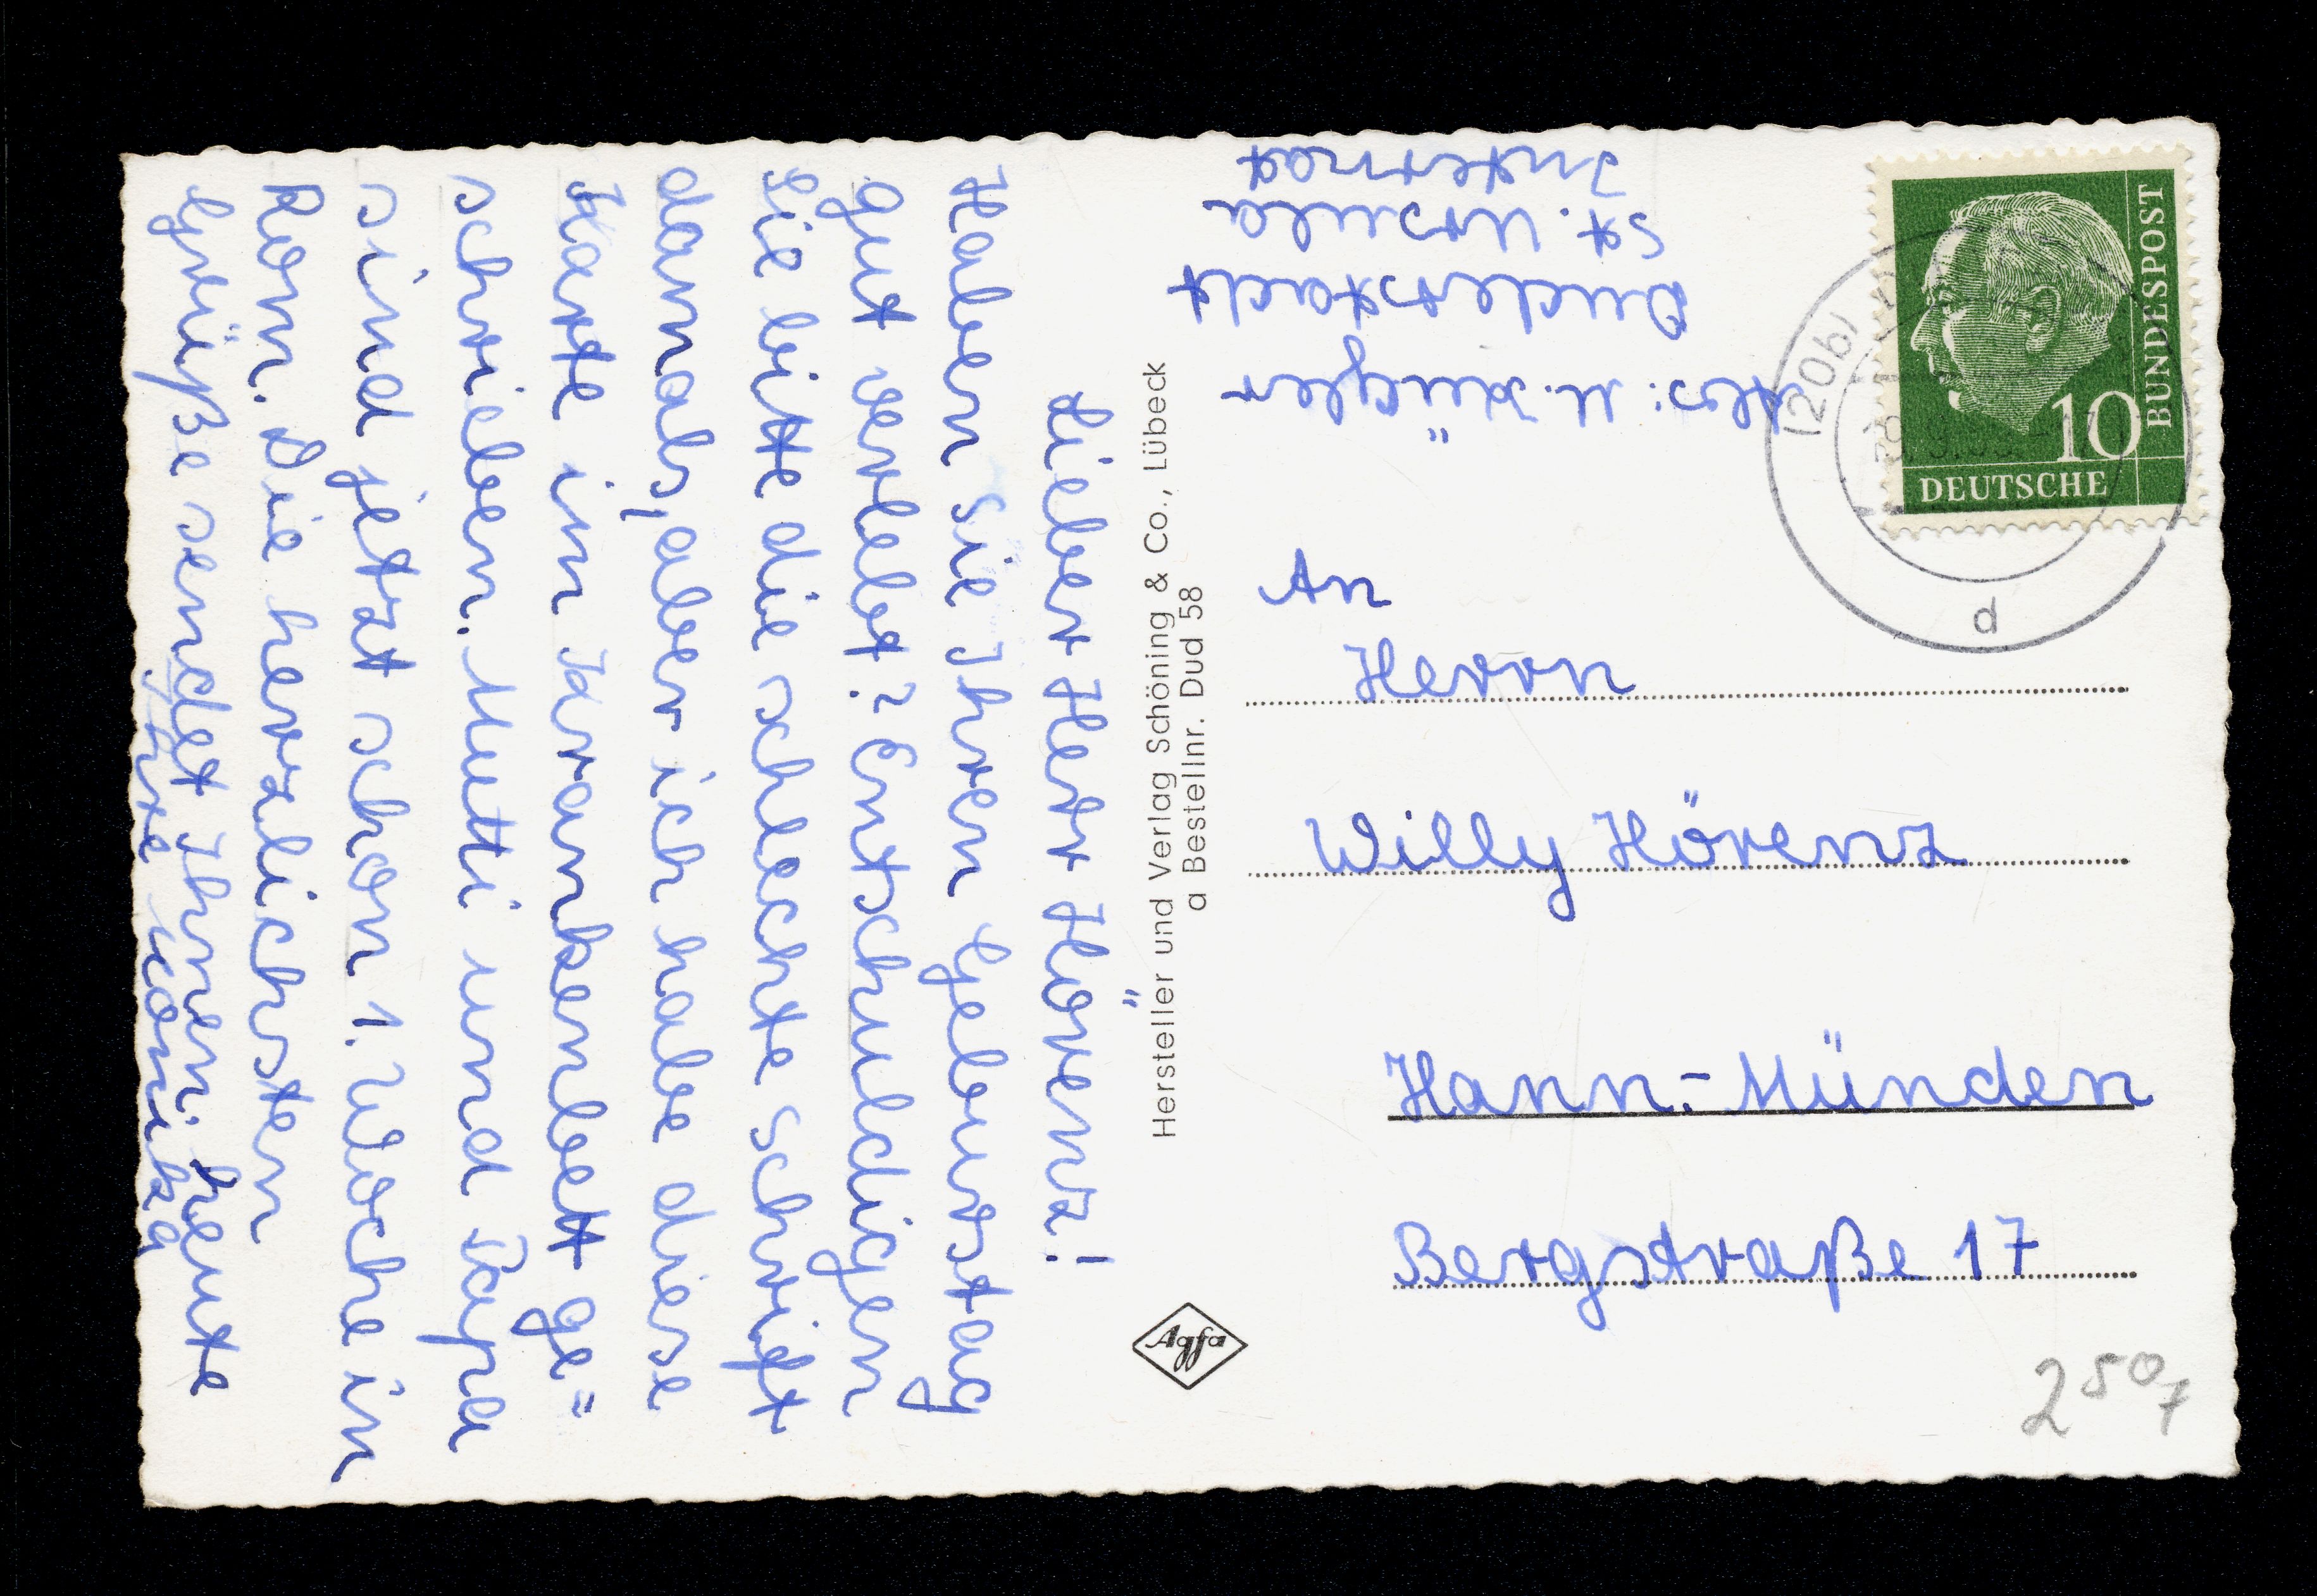 Lieber Herr Hörenz!
Haben Sie Ihren Geburstag
gut verlebt? Entschuldigen
Sie bitte die schlechte Schrift
damals, aber ich habe diese
Karte im Krankenbett ge=
schrieben. Mutti und Papa
sind jetzt schon 1. Woche in
Rom. Die herzlichsten
Grüße sendet Ihnen heute
Ihre Monika
Hersteller und Verlag Schöning & Co., Lübeck
a Bestellnr. Dud 58
Agfa
Abs: M. Kügler
Duderstadt
St. Ursula
Internat
DEUTSCHE
BUNDESPOST
10
(20b)
d
An
Herrn
Willy Hörenz
Hann.-Münden
Bergstraße 17
2507